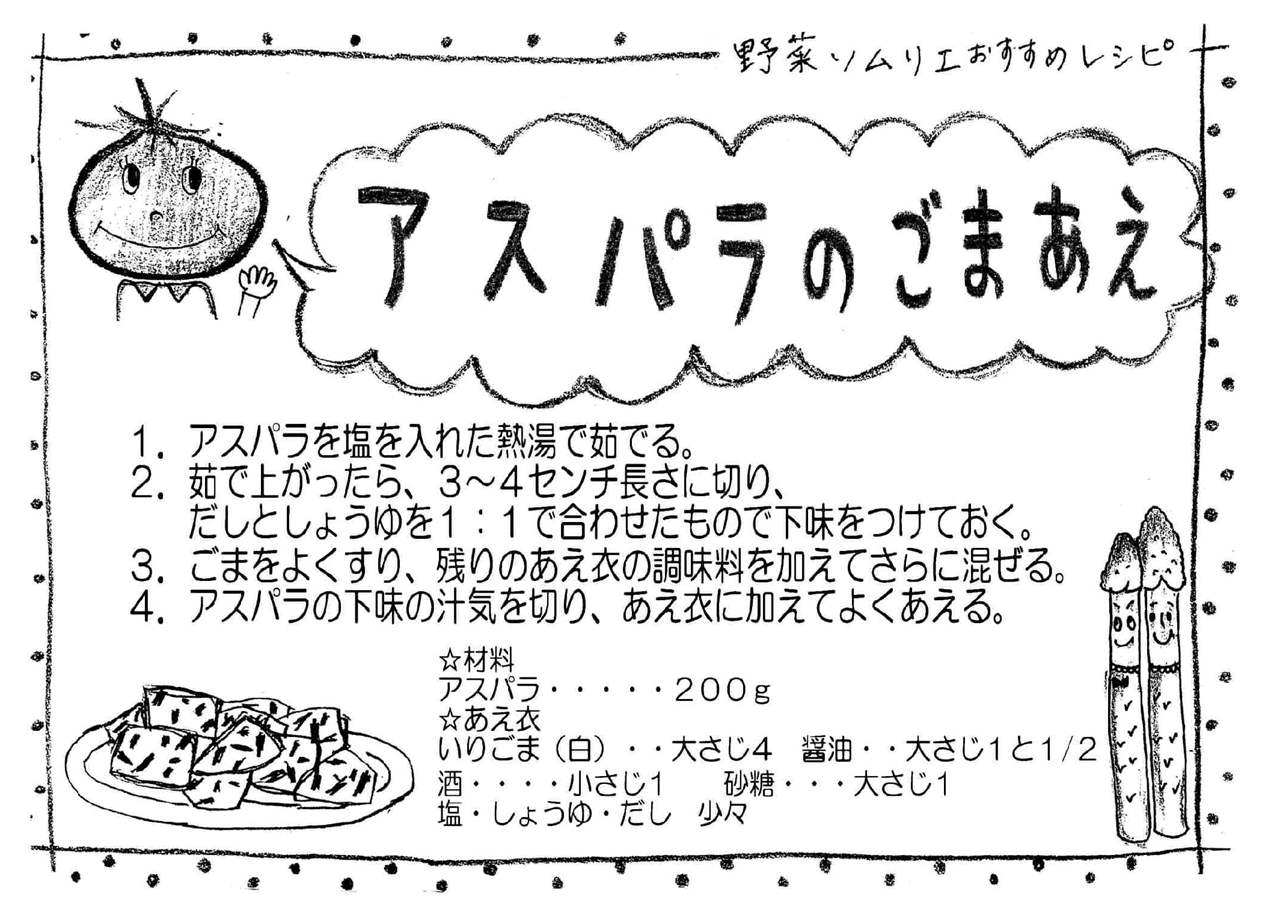 野菜ソムリエおすすめレシピ
アスパラのごまあえ
１．アスパラを塩を入れた熱湯で茹でる。
２．茹で上がったら、３～４センチ長さに切り、
だしとしょうゆを１：１で合わせたもので下味をつけておく。
３．ごまをよくすり、残りのあえ衣の調味料を加えてさらに混ぜる。
４．アスパラの下味の汁気を切り、あえ衣に加えてよくあえる。
☆材料
アスパラ・・・・・２００ｇ
☆あえ衣
いりごま（白）・・大さじ４　醤油・・大さじ１と１/２
酒・・・・小さじ１　　砂糖・・・大さじ１
塩・しょうゆ・だし　少々